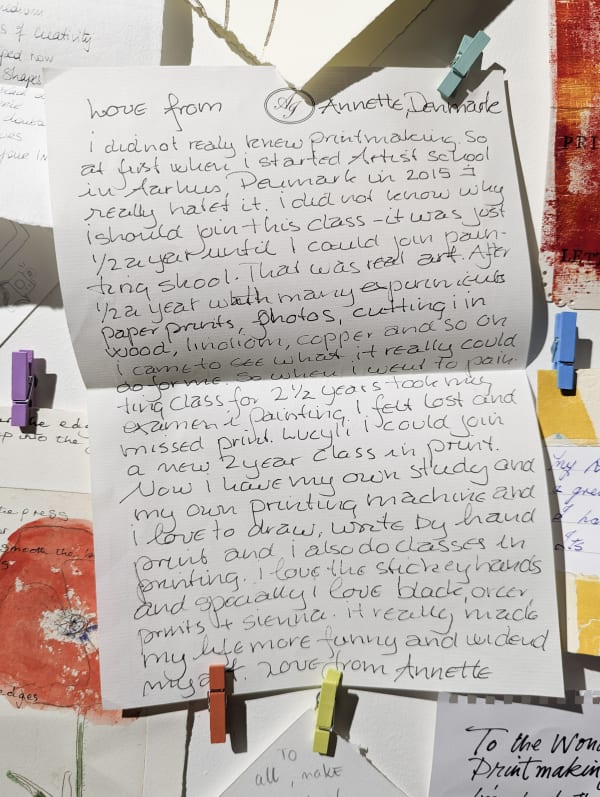 Love from Ag Annette, Denmark
i did not realy knew printmaking, so
at first when i started Artist school
in Aarhus, Denmark in 2015 I
really hatet it. i did not know why
i should join this class - it was just
1/2 a year until I could join pain-
ting skool. That was real art. After
1/2 a year with many experiments
paper prints, photos, cutting i in
wood, linoliom, copper and so on
i came to see what it really could
do for me. So when i went to pain-
ting class for 2 1/2 years took my
examen i painting, I felt lost and
missed print. Lucyli i could join
a new 2 year class in print.
Now i have my own study and
my own printing machine and
i love to draw, write by hand
print and i also do classes in
printing. i love the stickey hands
and specially i love black, orcer
prints + sienna. it really made
my life more funny and widend
my art. Love from Annette
of creativity
ped now
shapes
your in
PRI
LET
the edg
the press
smooth the
edges
my
gre
TO
all, make
To the Won
Printmakin